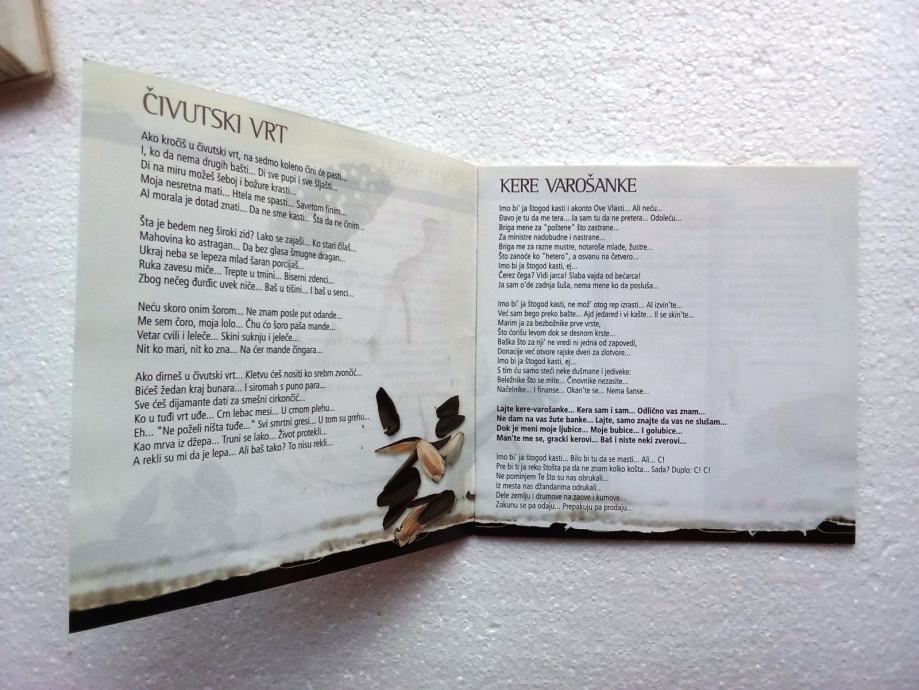 ČIVUTSKI VRT
Ako kročiš u čivutski vrt, na sedmo koleno čini će pasti...
I, ko da nema drugih bašti... Di sve pupi i sve šljašti...
Di na miru možeš šeboj i božure krasti...
Moja nesretna mati... Htela me spasti... Savetom finim...
Al morala je dotad znati... Da ne sme kasti... Šta da ne činim...
Šta je bedem neg široki zid? Lako se zajaši... Ko stari čilaš...
Mahovina ko astragan... Da bez glasa šmugne dragan...
Ukraj neba se lepeza mlad šaran porcijaš...
Ruka zavesu miče... Trepte u tmini... Biserni zdenci...
Zbog nečeg đurđic uvek niče... Baš u tišini... I baš u senci...
Neću skoro onim šorom... Ne znam posle put odande...
Me sem čoro, moja lolo... Čhu ćo šoro paša mande...
Vetar cvili i leleče... Skini suknju i jeleče...
Nit ko mari, nit ko zna... Na ćer mande čingara...
Ako dirneš u čivutski vrt... Kletvu ćeš nositi ko srebrn zvončić...
Bićeš žedan kraj bunara... I siromah s puno para...
Sve ćeš dijamante dati za smešni cirkončić...
Ko u tuđi vrt uđe... Crn lebac mesi... U crnom plehu...
Eh... "Ne poželi ništa tuđe..." Svi smrtni gresi... U tom su grehu...
Kao mrva iz džepa... Truni se lako... Život protekli...
A rekli su mi da je lepa... Ali baš tako? To nisu rekli...
KERE VAROŠANKE
Imo bi' ja štogod kasti i akonto Ove Vlasti... Ali neću...
Đavo je tu da me tera... Ja sam tu da ne pretera... Odoleću...
Briga mene za "poštene" što zastrane...
Za ministre nadobudne i nastrane...
Briga me za razne mustre, notaroše mlade, žustre...
Što zanoće ko "hetero", a osvanu na četvero...
Imo bi ja štogod kasti, ej...
Čerez čega? Vidi jarca! Slaba vajda od bećarca!
Ja sam o'de zadnja šuša, nema mene ko da posluša...
Imo bi' ja štogod kasti, ne mož' otog rep izrasti... Al izvin'te...
Već sam bego preko bašte... Ajd jedared i vi kašte... Il se skin'te...
Marim ja za bezbožnike prve vrste,
Što ćorišu levom dok se desnom krste...
Baška što za nji' ne vredi ni jedna od zapovedi,
Donacije već otvore rajske dveri za zlotvore...
Imo bi ja štogod kasti, ej...
S tim ću samo steći neke dušmane i jediveke:
Beležnike što se mite... Činovnike nezasite...
Načelnike... I finanse... Okan'te se... Nema šanse...
Lajte kere-varošanke... Kera sam i sam... Odlično vas znam...
Ne dam na vas žute banke... Lajte, samo znajte da vas ne slušam...
Dok je meni moje ljubice... Moje bubice... I golubice...
Man'te me se, gracki kerovi... Baš i niste neki zverovi...
Imo bi' ja štogod kasti... Bilo bi tu da se masti... Ali... C!
Pre bi ti ja reko štošta pa da ne znam kolko košta... Sada? Duplo: C! C!
Ne pominjem Te što su nas obrukali...
Iz mesta nas džandarima odrukali...
Dele zemlju i drumove na zaove i kumove...
Zakunu se pa odaju... Prepakuju pa prodaju...